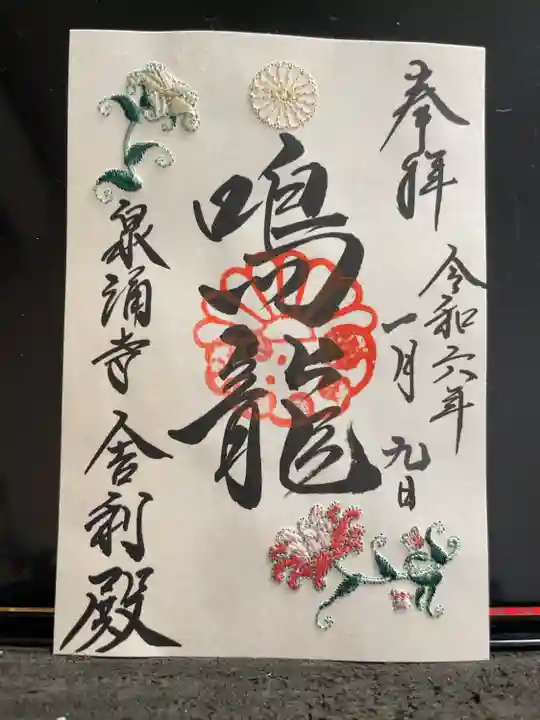 奉拝
令和六年
一月九日
鳴龍
泉涌寺舎利殿